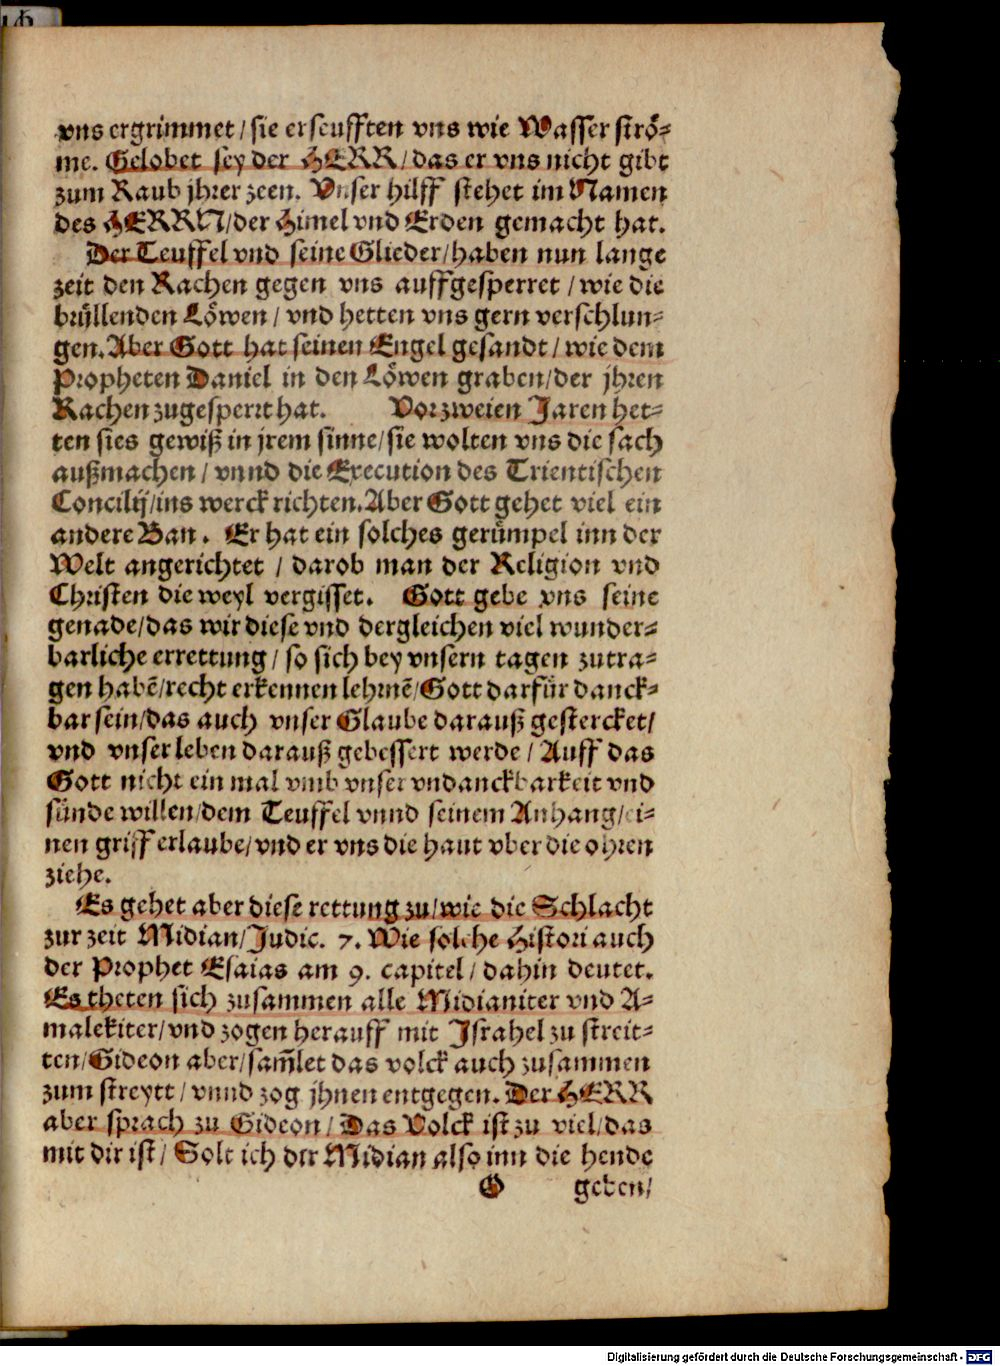 vns ergrimmet / sie erseufften vns wie Wasser strö-
me. Gelobet sey der HERR / das er vns nicht gibt
zum Raub jhrer zeen. Vnser hilff stehet im Namen
des HERRN/der Himel vnd Erden gemacht hat.
Der Teuffel vnd seine Glieder/haben nun lange
zeit den Rachen gegen vns auffgesperret / wie die
brüllenden Löwen / vnd hetten vns gern verschlun-
gen. Aber Gott hat seinen Engel gesandt / wie dem
Propheten Daniel in den Löwen graben/der jhren
Rachen zugesperrt hat. Vor zweien Jaren het-
ten sies gewiß in jrem sinne/sie wolten vns die sach
außmachen / vnnd die Execution des Trientischen
Concilij/ins werck richten. Aber Gott gehet viel ein
andere Ban. Er hat ein solches gerümpel inn der
Welt angerichtet / darob man der Religion vnd
Christen die weyl vergisset. Gott gebe vns seine
genade/das wir diese vnd dergleichen viel wunder-
barliche errettung / so sich bey vnsern tagen zutra-
gen habē/recht erkennen lehrnē/Gott darfür danck-
bar sein/das auch vnser Glaube darauß gestercket/
vnd vnser leben darauß gebessert werde / Auff das
Gott nicht ein mal vmb vnser vndanckbarkeit vnd
sünde willen/dem Teuffel vnnd seinem Anhang/ei-
nen griff erlaube/vnd er vns die haut vber die ohren
ziehe.
Es gehet aber diese rettung zu/wie die Schlacht
zur zeit Midian/Judic. 7. Wie solche Histori auch
der Prophet Esaias am 9. capitel / dahin deutet.
Es theten sich zusammen alle Midianiter vnd A-
malekiter/vnd zogen herauff mit Jsrahel zu streit-
ten/Gideon aber/sam̄let das volck auch zusammen
zum streytt / vnnd zog jhnen entgegen. Der HERR
aber sprach zu Gideon / Das Volck ist zu viel/das
mit dir ist / Solt ich der Midian also inn die hende
G geben/
Digitalisierung gefördert durch die Deutsche Forschungsgemeinschaft - DFG